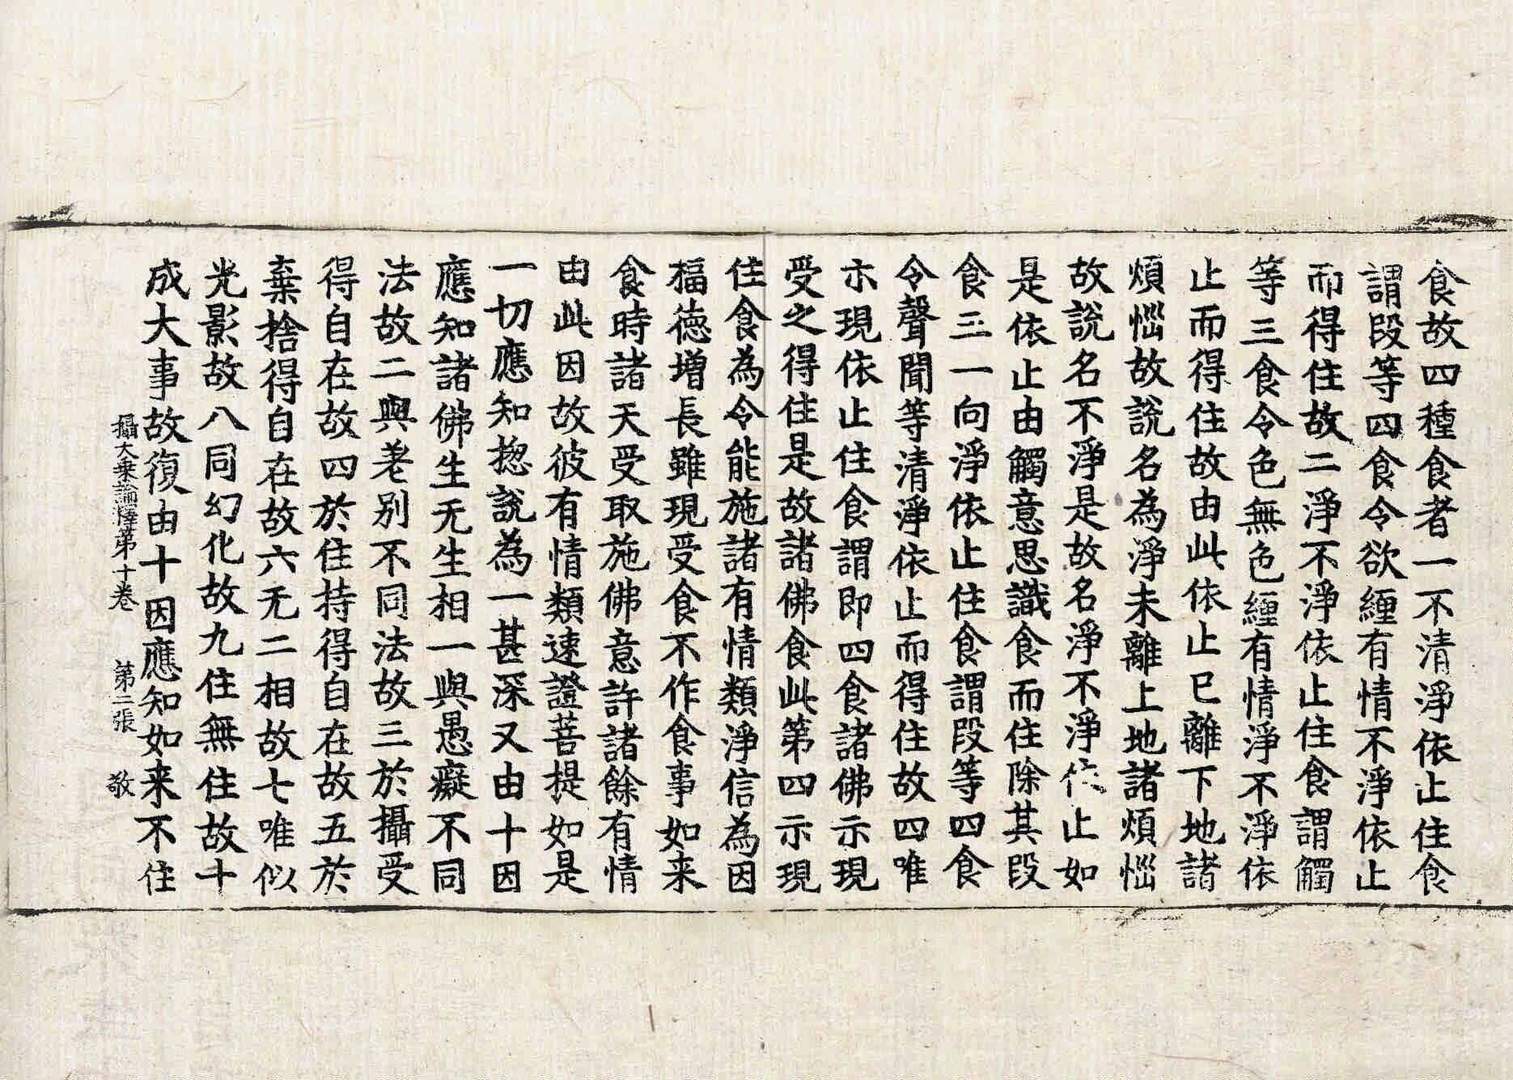 食故四種食者一不清淨依止住食
謂段等四食令欲纏有情不淨依止
而得住故二淨不淨依止住食謂觸
等三食令色無色纏有情淨不淨依
止而得住故由此依止已離下地諸
煩惱故說名為淨未離上地諸煩惱
故說名不淨是故名淨不淨依止如
是依止由觸意思識食而住除其段
食三一向淨依止住食謂段等四食
令聲聞等清淨依止而得住故四唯
示現依止住食謂即四食諸佛示現
受之得住是故諸佛食此第四示現
住食為令能施諸有情類淨信為因
福德增長雖現受食不作食事如来
食時諸天受取施佛意許諸餘有情
由此因故彼有情類速證菩提如是
一切應知揔說為一甚深又由十因
應知諸佛生无生相一與愚癡不同
法故二與老别不同法故三於攝受
得自在故四於住持得自在故五於
棄捨得自在故六无二相故七唯似
光影故八同幻化故九住無住故十
成大事故復由十因應知如来不住
攝大乗論釋第十卷 第二張 敬